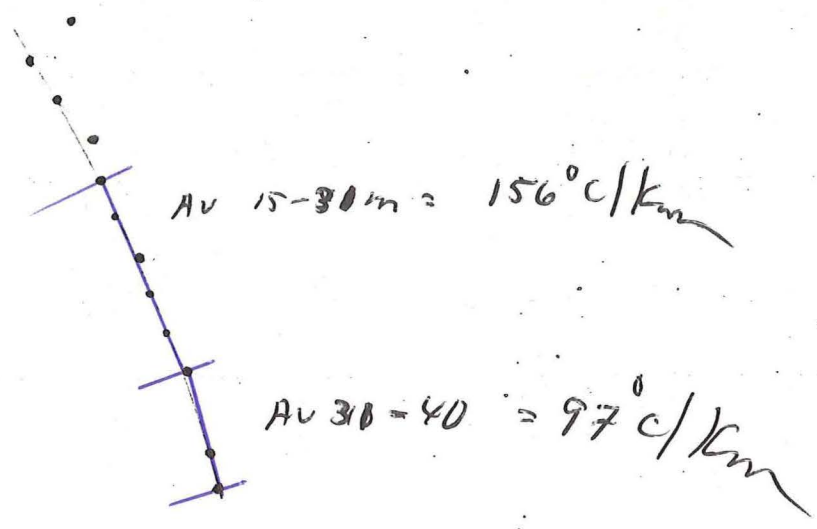 Av 15-30m = 156°C/km
Av 30-40 = 97°C/km